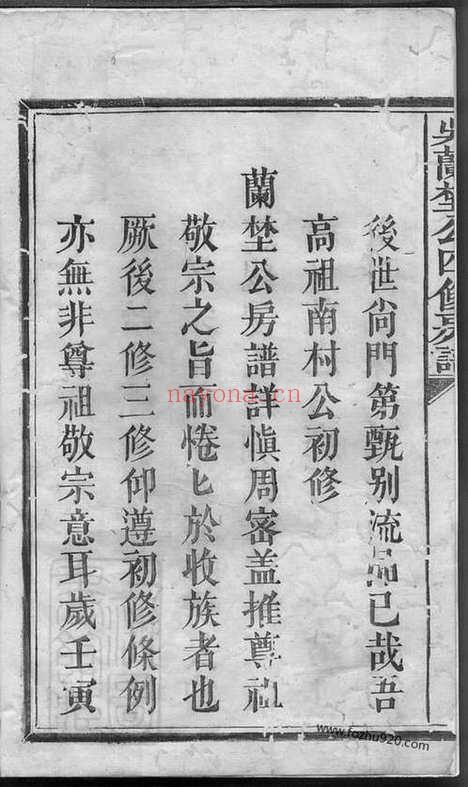 吳蘭埜公四修房譜
後世尙門第甄别流品已哉吾
高祖南村公初修
蘭埜公房譜詳愼周審盖推尊祖
敬宗之旨而惓匕於收族者也
厥後二修三修仰遵初修條例
亦無非尊祖敬宗意耳歲壬寅
nayona.cn
www.fozhu920.com